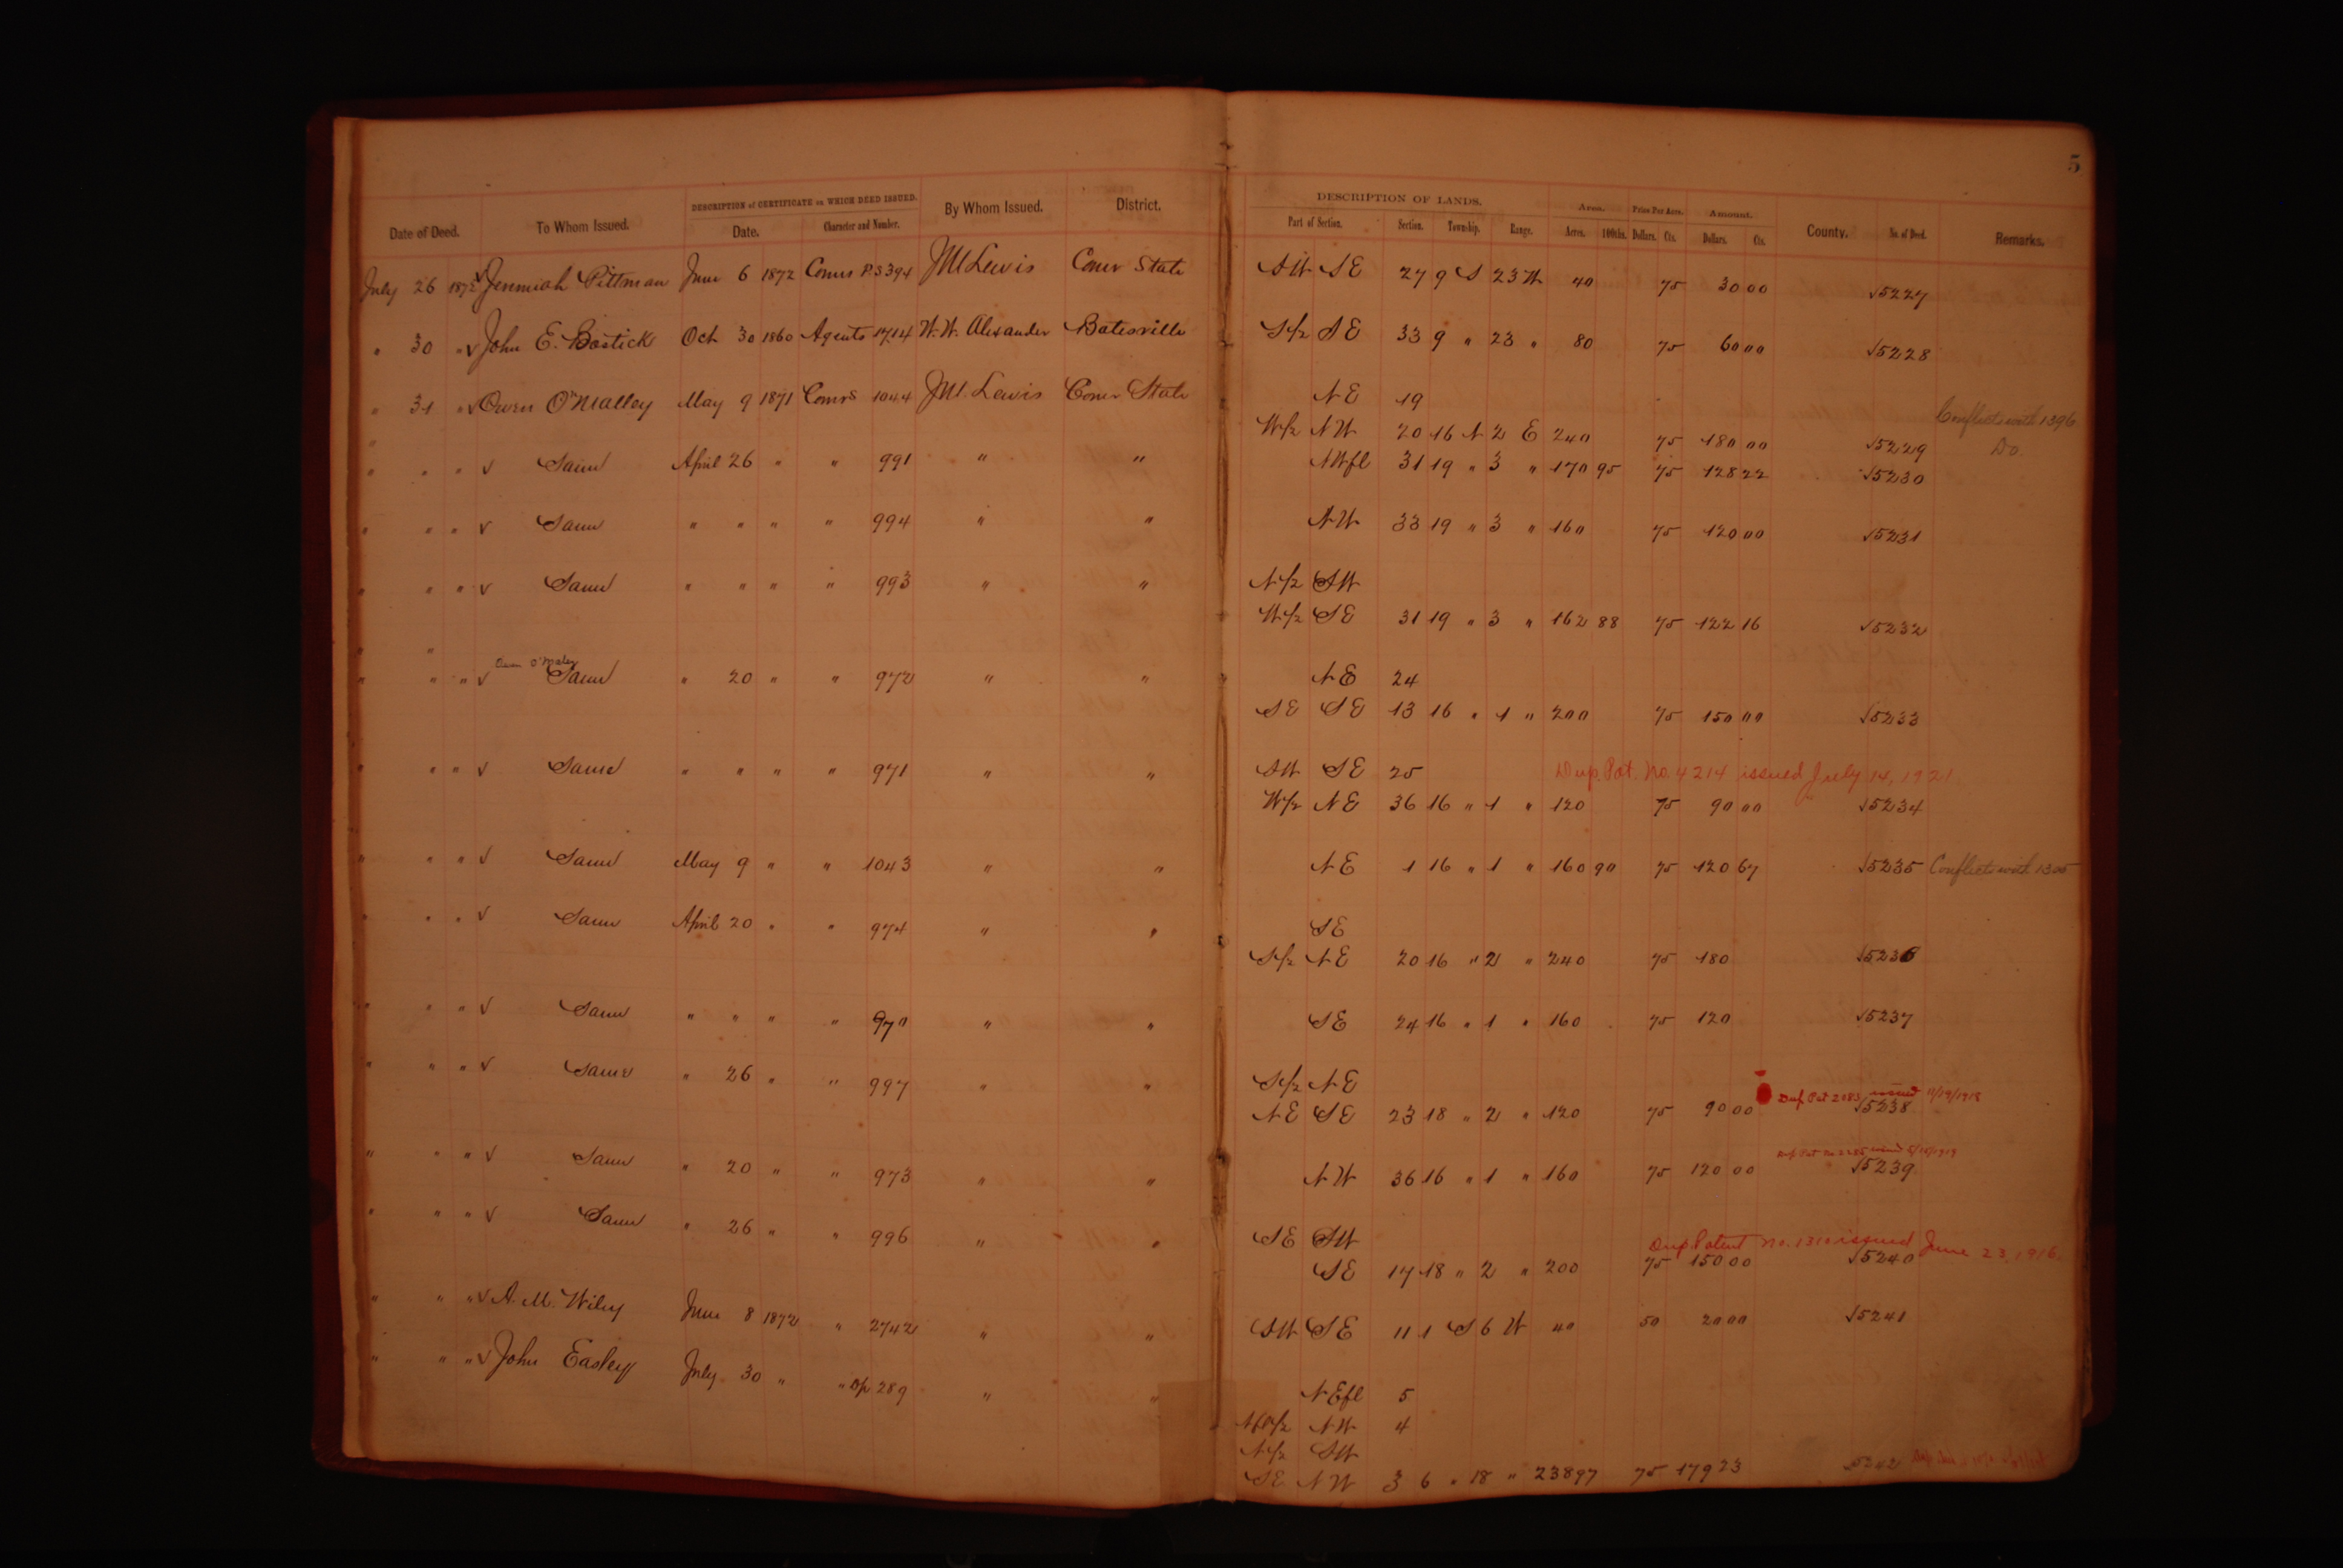 5
DESCRIPTION of CERTIFICATE on WHICH DEED ISSUED. DESCRIPTION OF LANDS. Area. Price Per Acre. Amount.
Date of Deed. To Whom Issued. Date. Character and Number. By Whom Issued. District. Part of Section. Section. Township. Range. Acres. 100ths. Dollars. Cts. Dollars. Cts. County. No. of Deed. Remarks.
July 26 1872 √ Jeremiah Pittman June 6 1872 Comrs P.S 394 JM Lewis Comr State SW SE 27 9 S 23 W 40 75 30 00 √5227
" 30 " √ John E. Bostick Oct 30 1860 Agents 1714 W.W. Alexander Batesville S/2 SE 33 9 " 23 " 80 75 60 00 √5228
" 31 " √ Owen O'Malley May 9 1871 Comrs 1044 JM Lewis Comr State NE 19
Conflicts with 1396
" W/2 NW 20 16 N 2 E 240 75 180 00 √5229 Do
" " " √ Same April 26 " " 991 " " NWfl 31 19 " 3 " 170 95 75 128 22 √5230
" " " √ Same " " " " 994 " " NW 33 19 " 3 " 160 75 120 00 √5231
" " " √ Same " " " " 993 " " N/2 SW
W/2 SE 31 19 " 3 " 162 88 75 122 16 √5232
" "
Owen O'Maley
" " " √ Same " 20 " " 972 " " NE 24
SE SE 13 16 " 1 " 200 75 150 00 √5233
" " " √ Same " " " " 971 " " SW SE 25 Dup. Pat. No. 4214 issued July 14, 1921
W/2 NE 36 16 " 1 " 120 75 90 00 √5234
" " " √ Same May 9 " " 1043 " " NE 1 16 " 1 " 160 90 75 120 67 √5235 Conflicts with 1305
" " " √ Same April 20 " " 974 " " SE
S/2 NE 20 16 " 2 " 240 75 180 √5236
" " " √ Same " " " " 970 " " SE 24 16 " 1 " 160 75 120 √5237
" " " √ Same " 26 " " 997 " " S/2 NE
Dup Pat 2183 issued 11/19/1918
NE SE 23 18 " 2 " 120 75 90 00 √5238
Dup Pat No 2285 issued
" " " √ Same " 20 " " 973 " " NW 36 16 " 1 " 160 75 120 00 √5239
" " " √ Same " 26 " " 996 " " SE SW
Dup. Patent No. 1310 issued June 23, 1916.
SE 17 18 " 2 " 200 75 150 00 √5240
" " " √ A. M. Wiley June 8 1872 " 2742 " " SW SE 11 1 S 6 W 40 50 20 00 √5241
" " " √ John Easley July 30 " " Dp 289 " " NEfl 5
NW 4
N/2 SW
SE NW 3 6 " 18 " 238 97 75 179 23 5242